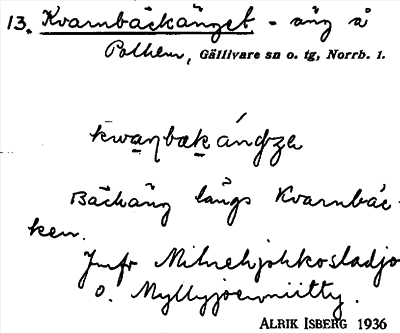 13. Kvarnbäckänget - äng å
Polhem, Gällivare sn o. tg, Norrb. l.
Bäckäng längs Kvarnbäc-
ken.
Jmfr
o. Myllyjoenniitty.
ALRIK ISBERG 1936